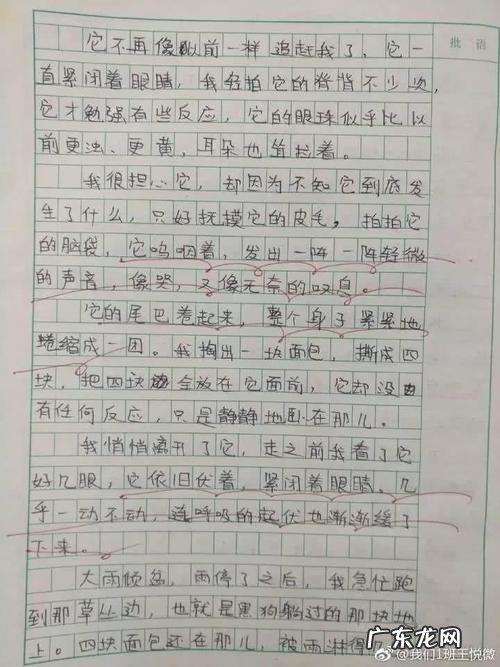 批语
它不再像以前一样追赶我了，它一
直紧闭着眼睛，我轻拍它的脊背不少次，
它才勉强有些反应，它的眼珠似乎比以
前更浊、更黄，耳朵也耷拉着。
我很担心它，却因为不知它到底发
生了什么，只好抚摸它的皮毛，拍拍它
的脑袋，它呜咽着，发出一阵一阵轻微
的声音，像哭，又像无奈的叹息。
它的尾巴卷起来，整个身子紧紧地
蜷缩成一团。我掏出一块面包，撕成四
块，把四块全放在它面前，它却没
有任何反应，只是静静地卧在那儿。
我悄悄离开了它，走之前我看了它
好几眼，它依旧伏着，紧闭着眼睛，几
乎一动不动，连呼吸的起伏也渐渐缓了
下来。
大雨倾盆，雨停了之后，我急忙跑
到那草丛边，也就是黑狗躺过的那块地
上。四块面包还在那儿，被雨淋得
广东龙网
@我们1班王悦微